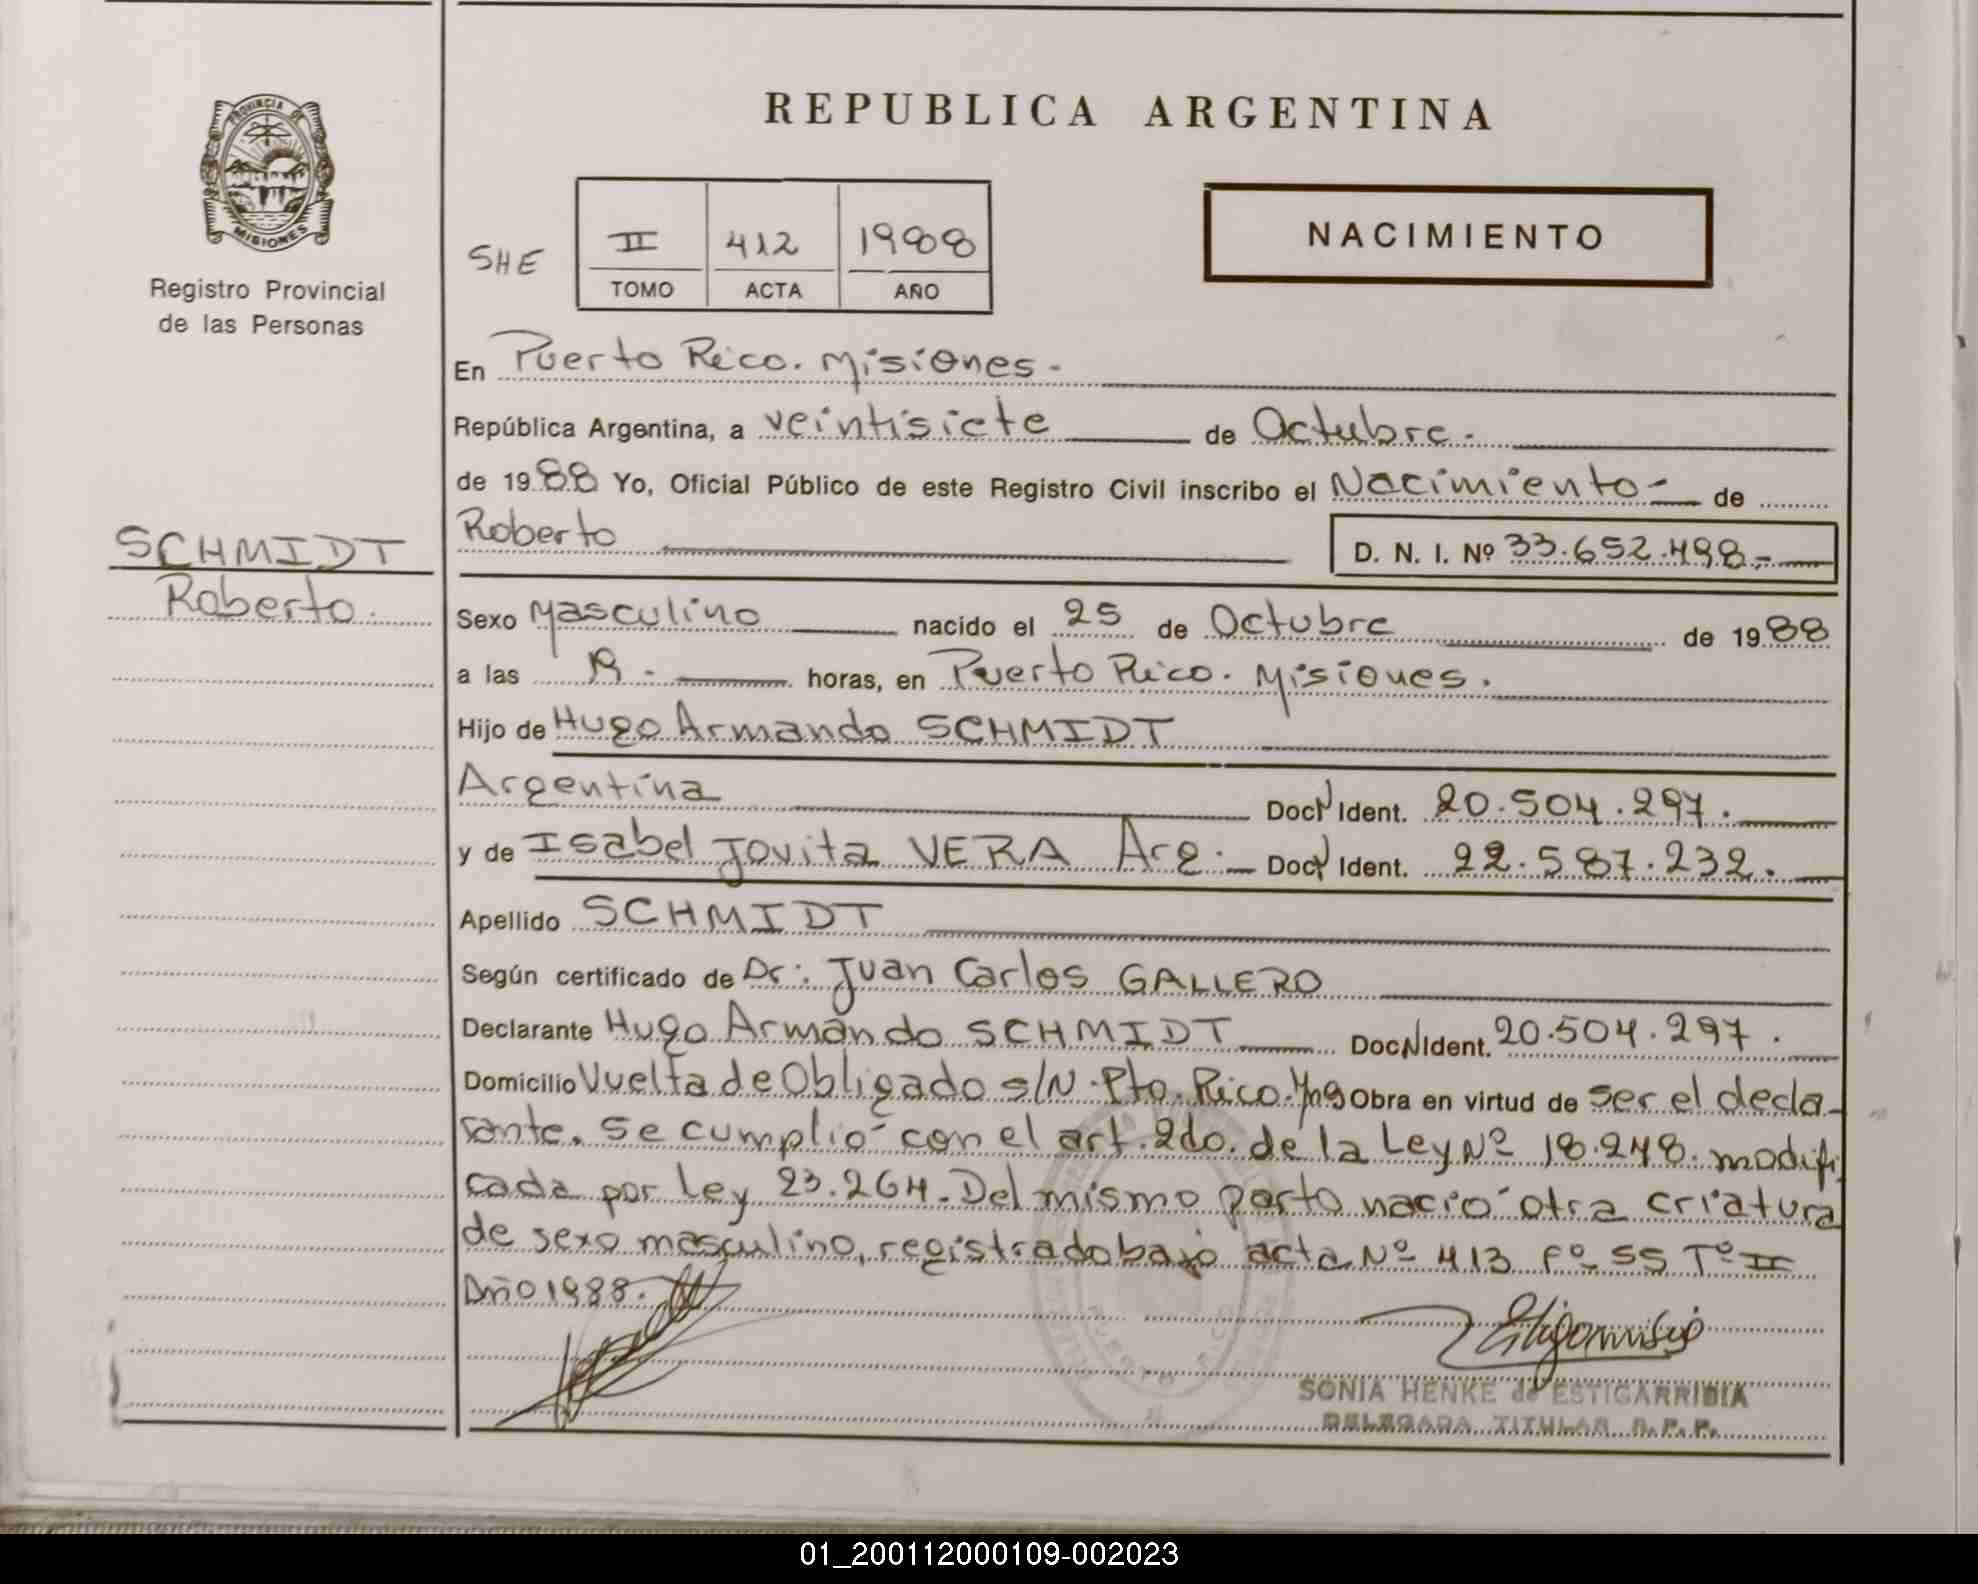 REPUBLICA ARGENTINA
PROVINCIA DE
MISIONES
Registro Provincial
de las Personas
SHE
II 412 1988
TOMO ACTA AÑO
NACIMIENTO
En Puerto Rico. Misiones.-
República Argentina, a veintisiete de Octubre.-
de 1988 Yo, Oficial Público de este Registro Civil inscribo el Nacimiento- de
Roberto D. N. I. Nº 33.652.498.-
SCHMIDT
Roberto.
Sexo Masculino nacido el 25 de Octubre de 1988
a las horas, en Puerto Rico. Misiones.
Hijo de Hugo Armando SCHMIDT
Argentina Doc N Ident. 20.504.297.
y de Isabel Jovita VERA Arg.- Doc N Ident. 22.587.232.
Apellido SCHMIDT
Según certificado de Dr: Juan Carlos GALLERO
Declarante Hugo Armando SCHMIDT Doc N Ident. 20.504.297.
Domicilio Vuelta de Obligado s/N. Pto. Rico. Mns Obra en virtud de ser el decla-
rante. Se cumplió con el art. 2do. de la Ley Nº 18.248. modifi
cada por Ley 23.264. Del mismo parto nació otra criatura
de sexo masculino, registrado bajo acta Nº 413 Fº 55 Tº II
Año 1988.
SONIA HENKE de ESTIGARRIBIA
DELEGADA TITULAR R. P. P.
01_200112000109-002023